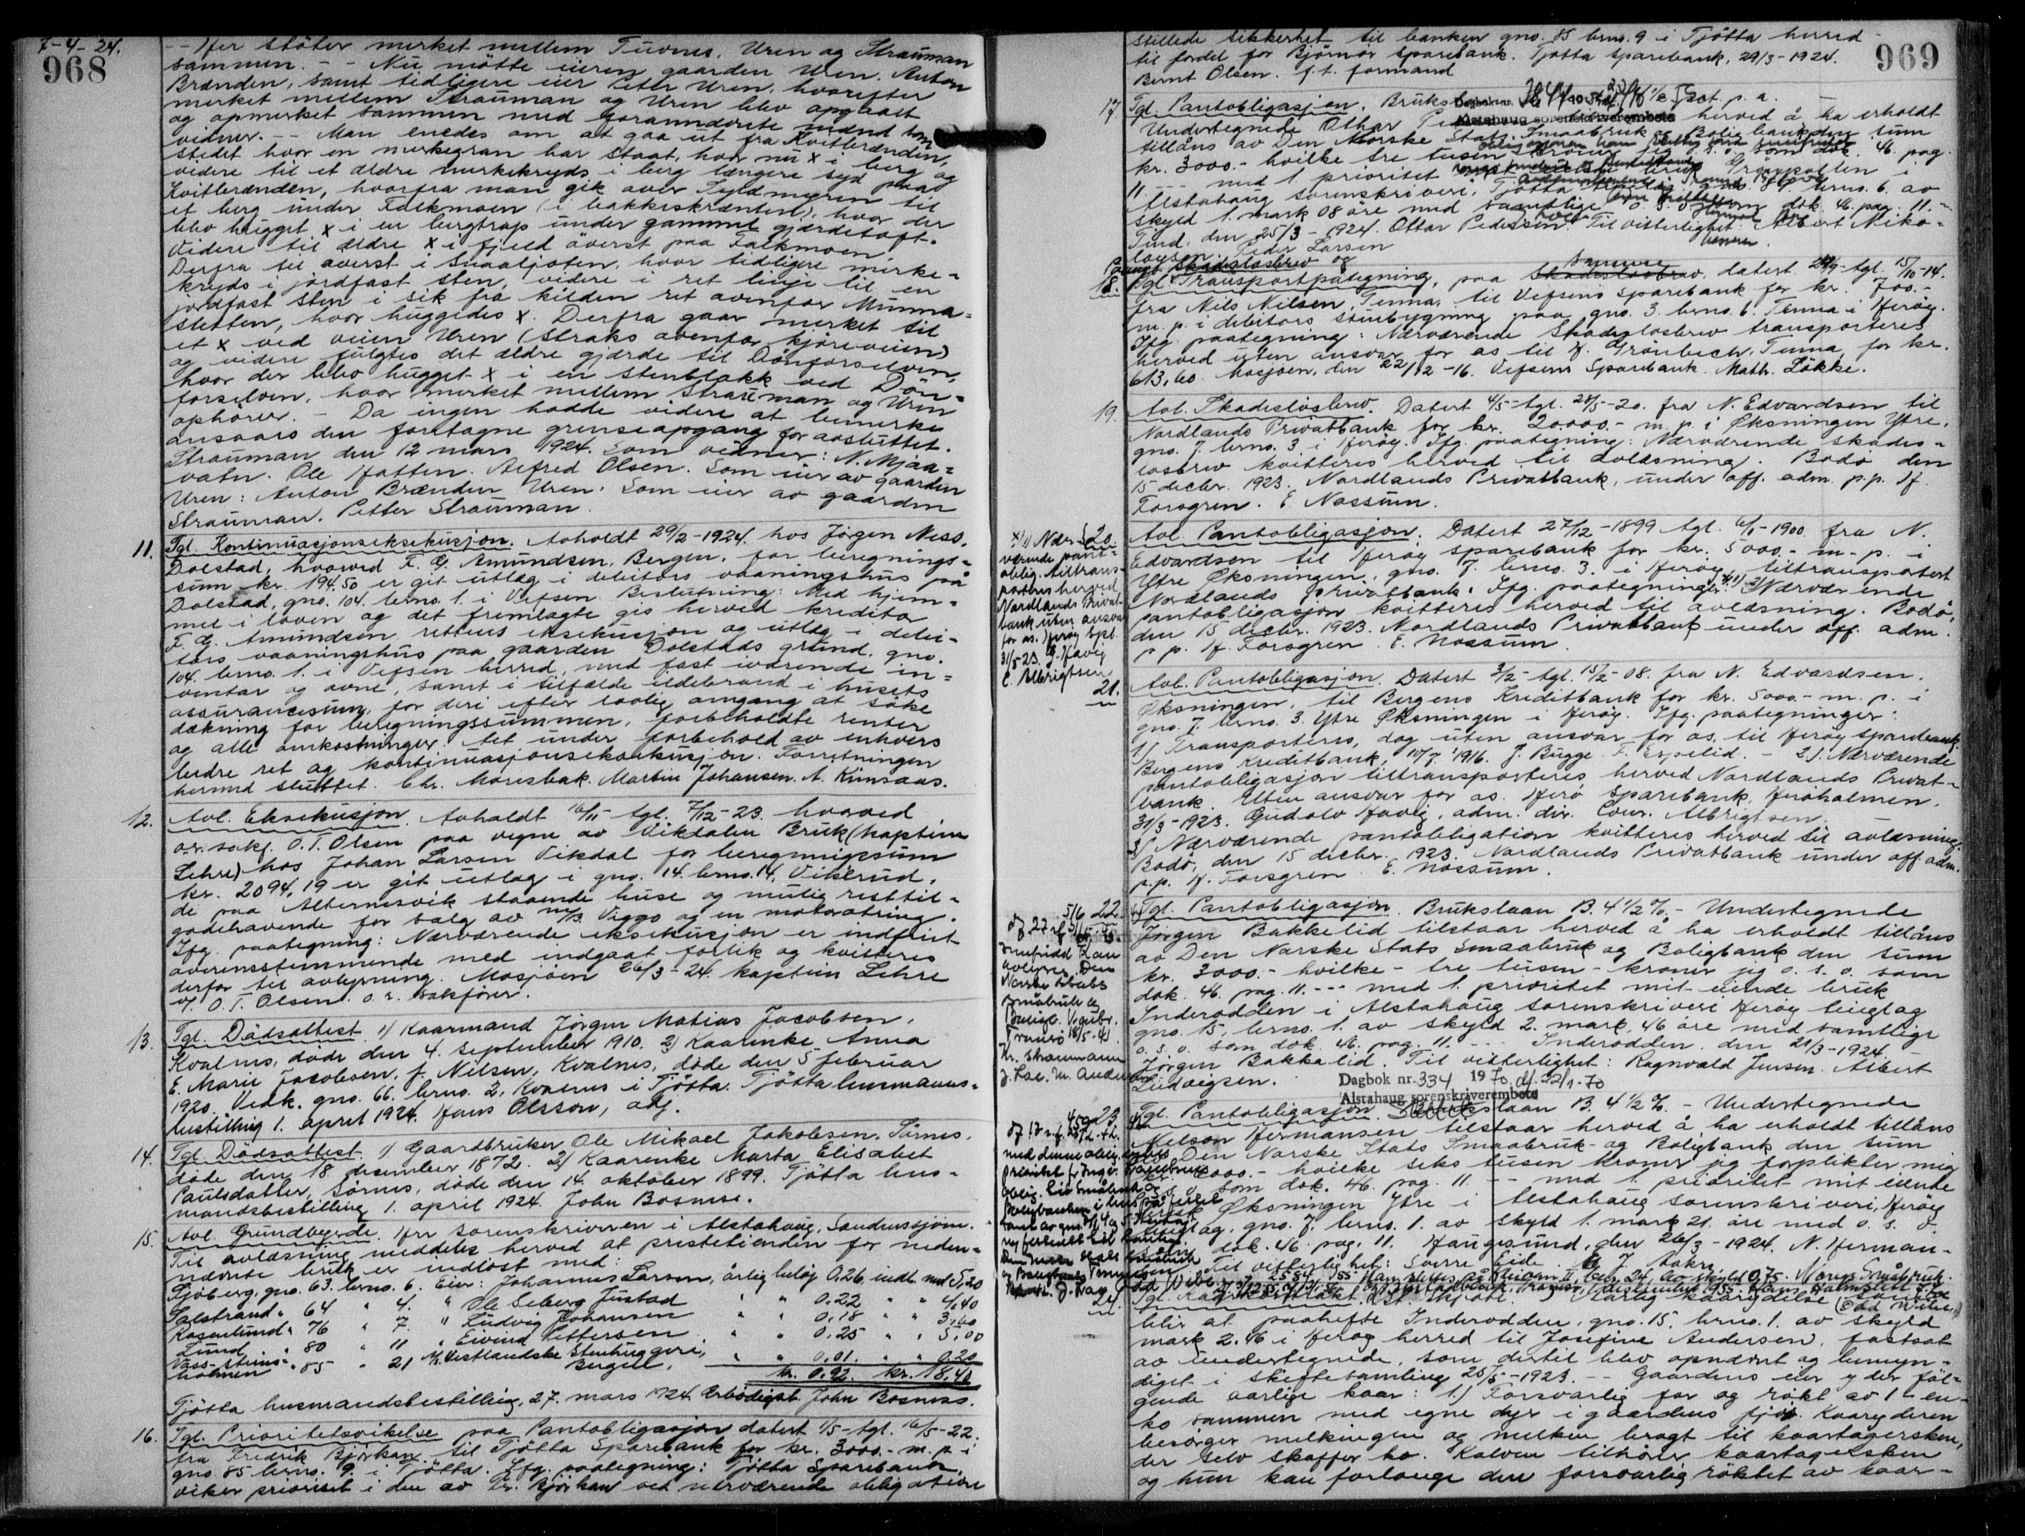 7-4-24.
968
- - Her støter merket mellem Tuvnes, Uren og Strauman
sammen. - - Nu møtte eieren gaarden Uren, Anton
Brænden, samt tidligere eier Peter Uren, hvorefter
merket mellem Strauman og Uren blev opgaat
og opmerket sammen med
vidner. - - Man enedes om at gaa ut fra Kvitbrænden,
stedet hvor en merkegran har staat, hvor nu x i berg og
videre til et ældre merkekryds i berg længere syd paa
Kvitbrænden, hvorfra man gik over Tyldmyren til
et berg under Falkmoen (i bakkeskrænten), hvor der
blev hugget x i en bergtrap under gammel gjærdetoft.
Videre til ældre x i fjeld øverst paa Falkmoen.
Derfra til øverst i Snaaljoten, hvor tidligere merke-
kryds i jordfast sten, videre i ret linje til en
jordfast sten i sik fra kilden ret ovenfor Munna-
sletten, hvor huggedes x. Derfra gaar merket til
et x ved veien Uren (straks ovenfor kjøreveien)
og videre fulgtes det ældre gjærde til Dønforselven,
hvor der blev hugget x i en stenblokk ved Døn-
forselven, hvor merket mellem Strauman og Uren
ophører. - Da ingen hadde videre at bemerke
ansaaes den foretagne grenseopgang for avsluttet.
Strauman den 12 mars 1924. Som vidner: N. Mjaa-
vatn. Ole Hatten. Alfred Olsen. Som eier av gaarden
Uren: Anton Brænden Uren. Som eier av gaarden
Strauman. Petter Strauman.
11. Tgl. Kontinuasjonseksekusjon. Avholdt 29/2-1924 hos Jørgen Ness,
Dolstad, hvorved F. G. Amundsen, Bergen, for beregnings-
sum kr. 194.50 er git utlæg i debitors vaaningshus på
Dolstad, gno. 104 brno. 1. i Vefsn. Beslutning: Med hjem-
mel i loven og det fremlagte gis herved kreditor
F. G. Amundsen rettens eksekusjon og utlæg i debi-
tors vaaningshus paa gaarden Dolstads grund, gno.
104. brno. 1. i Vefsen herred, med fast iværende in-
ventar og ovne, samt i tilfælde ildebrand i husets
assurancesum, for deri efter lovlig omgang at søke
dækning for beregningssummen, forbeholdte renter
og alle omkostninger. Alt under forbehold av enhvers
bedre ret og kontinuasjonseksekusjon. Forretningen
hermed sluttet. Chr. Moresbak. Martin Johansen. A. Kimsaas.
12. Avl. Eksekusjon. Avholdt 16/11 tgl. 7/12-23 hvorved
o.r. sakf. O. T. Olsen paa vegne av Vikdalen Bruk (kaptein
Lehre) hos Johan Larsen Vikdal for beregningssum
kr. 2094,19 er git utlæg i gno. 14. brno. 14. Vikbrud,
de paa Alternesvik staaende huse og mulig resttil-
godehavende for salg av m/s Viggo og en motoratring.
Ifg. paategning: Nærværende eksekusjon er indfriet
overensstemmende med indgaat forlik og kvitteres
derfor til avlysning. Mosjøen 26/3-24. kaptein Lehre
v/ O. T. Olsen. o. r. saksfører.
13. Tgl. Dødsattest. 1) Kaarmand Jørgen Matias Jacobsen,
Kvalnes, døde den 4. september 1910. 2) Kaarenke Anna
E. Marie Jacobsen, f. Nilsen, Kvalnes, døde den 5 februar
1920. Vedk. gno. 66. brno. 2, Kvalnes i Tjøtta. Tjøtta lensmanns-
bestilling 1. april 1924. Hans Olsson, adj.
14. Tgl. Dødsattest. 1) Gaardbruker Ole Mikael Jakobsen, Sørnes,
døde den 18 desember 1872. 2) Kaarenke Marta Elisabet
Paulsdatter, Sørnes, døde den 14. oktober 1899. Tjøtta lens-
mandsbestilling 1. april 1924. John Bosness.
15. Avl. Grundbyrde. Hr. sorenskriveren i Alstahaug, Sandnessjøen.
Til avlæsning meddeles herved at prestetienden for neden-
nævnte bruk er indløst med:
Sjøberg, gno. 63. brno. 6. Eier: Johannes Larsen, årlig beløp 0,26 indl. med 5,20
Solstrand " 64 " 4. " Ole Seberg Justad " " 0,22 " " 4,40
Rosenlund " 76 " 7 " Ludvig Johansen " " 0,18 " " 3,60
Lund " 80 " 11 " Eivind Pettersen " " 0,25 " " 5,00
Vass-steins-
holmen " 85 " 21 A/S Vestlandske Stenhuggeri,
Bergen, " " 0,01 " " 0,20
kr. 0,92. kr. 18,40
Tjøtta lensmandsbestilling, 27. mars 1924. Ærbødigst John Bosness.
16. Tgl. Prioritetsvikelse paa Pantobligasjon datert 1/5-tgl. 16/5-22.
fra Fredrik Bjørkan til Tjøtta Sparebank for kr. 3000.- m. p. i
gno 85 brno. 9. i Tjøtta. Ifg. paategning: Tjøtta Sparebank
viker prioritet i den av Fr. Bjørkan ved nærværende obligation
969
stillede sikkerhet til banken gno. 85 brno. 9 i Tjøtta herred
til fordel for Bjørnør sparebank. Tjøtta Sparebank, 29/3-1924.
Bernt Olsen. f. t. formand
17. Tgl. Pantobligasjon. Brukslaan
Alstahaug sorenskriverembete
Undertegnede Ottar Pedersen herved å ha erholdt
tillåns av Den Norske Stats Smaabruk og Boligbank den sum
kr. 3000.- hvilke tre tusen kroner jeg o. s. o. som dok. 46 pag.
11 --- med 1. prioritet
Alstahaug sorenskriveri, Tjøtta brno. 6. av
skyld 1. mark 08 øre med samtlige o. s. o. som dok. 46. pag. 11.-
Tind, den 25/3-1924. Ottar Pedersen. Til vitterlighet: Albert Niko-
laysen. Peder Larsen
18. Tgl. Transportpaategning, paa Skadesløsbrev, datert 24/9-tgl. 15/10-14.
fra Nils Nilsen, Tenna, til Vefsens sparebank for kr. 700.-
m. p. i debitors stuebygning paa gno. 3. brno. 6. Tenna i Herøy.
Ifg. paategning: Nærværende Skadesløsbrev transporteres
herved uten ansvar for os til H. Grönbech, Tenna, for kr.
613,60. Mosjøen, den 22/12-16. Vefsens Sparebank. Math. Løkke.
19. Avl. Skadesløsbrev. Datert 4/5-tgl. 25/5-20. fra N. Edvardsen til
Nordlands Privatbank for kr. 20000.- m. p. i Øksningen Ytre,
gno. 7. brno. 3. i Herøy. Ifg. paategning: Nærværende skades-
løsbrev kvitteres herved til avlæsning. Bodø den
15 decbr. 1923. Nordlands Privatbank, under off. adm. p.p. H.
Forsgren. E. Nossum.
20. Avl. Pantobligasjon. Datert 27/12-1899 tgl. 6/1-1900 fra N.
Edvardsen til Herøy sparebank for kr. 5000.- m. p. i
Ytre Øksningen, gno. 7. brno. 3. i Herøy, tiltransportert
Nordlands Privatbank. Ifg. paategninger: x1) 2) Nærværende
pantobligasjon kvitteres herved til avlæsning. Bodø,
den 15 decbr. 1923. Nordlands Privatbank under off. adm.
p. p. H. Forsgren. E. Nossum.
x) 1) Nær-
værende pant-
oblig. tiltrans-
porteres herved
Nordlands Privat-
bank uten ansvar
for os. Herøy Spb.
31/5-23. G. Havig
C. Albrigtsen.
21. Avl. Pantobligasjon. Datert 3/2-tgl. 15/2-08. fra N. Edvardsen,
Øksningen, til Bergens Kreditbank for kr. 5000.- m. p. i
gno. 7. brno. 3. Ytre Øksningen i Herøy. Ifg. paategninger:
1) Transporteres, dog uten ansvar for os, til Herøy sparebank.
Bergens Kreditbank, 10/7 1916. J. Bugge. F. Espelid. - 2). Nærværende
pantobligasjon tiltransporteres herved Nordlands Privat-
bank. Uten ansvar for os. Herø Sparebank, Herøholmen,
31/3-1923. Gudolv Havig, adm. dir. Conr. Albrigtsen.
3) Nærværende pantobligation kvitteres herved til avlæsning.
Bodø, den 15 decbr. 1923. Nordlands Privatbank under off. adm.
p.p. H. Forsgren. E. Nossum.
22. Tgl. Pantobligasjon. Brukslaan B. 4 1/2 %. - Undertegnede
Jørgen Bakkelid tilstaar herved å ha erholdt tillåns
av Den Norske Stats Smaabruk og Boligbank den sum
kr. 3000.- hvilke - tre tusen - kroner jeg o. s. o. som
dok. 46. pag. 11. --- med 1. prioritet mit eiende bruk
Inderodden i Alstahaug sorenskriveri Herøy tinglag
gno. 15. brno. 1. av skyld 2. mark, 46 øre med samtlige
o. s. o. som dok. 46. pag. 11. --- Inderodden, den 21/3-1924.
Jørgen Bakkelid. Til vitterlighet: Ragnvald Jensen. Albert
Ludvigsen.
Dagbok nr. 334 1970 df. 22/1-70
Alstahaug sorenskriverembete
Slettet
23. Tgl. Pantobligasjon. Brukslaan B. 4 1/2 %. - Undertegnede
Nelson Hermansen tilstaar herved å ha erholdt tillåns
av Den Norske Stats Smaabruk- og Boligbank den sum
kr. 6000.- hvilke seks tusen kroner jeg forplikter mig
som dok. 46. pag. 11. -- med 1. prioritet mit eiende
bruk Øksningen Ytre i Alstahaug sorenskriveri, Herøy
tinglag, gno. 7. brno. 1. av skyld 1. mark 21. øre med o. s. o.
som dok. 46. pag. 11. Haugesund, den 26/3-1924. N. Herman-
sen. Til vitterlighet: Sverre Eide.
24. Tgl. Kaarkontrakt
blir at paahefte Inderodden, gno. 15. brno. 1. av skyld
mark 2.46 i Herøy herred til Josefine Andersen, fastsat
av undertegnede, som dertil blev opnævnt og bemyn-
diget i skiftesamling 25/5-1923. -- Gaardens eier yder føl-
gende aarlige kaar: 1) Forsvarlig for og røkt av 1 en
ko sammen med egne dyr i gaardens fjøs. Kaaryderen
besørger melkingen og melken bragt til kaartagersken,
der selv skaffer ko. Kalven tilhører kaartagersken
og hun kan forlange den forsvarlig røktet av kaar-